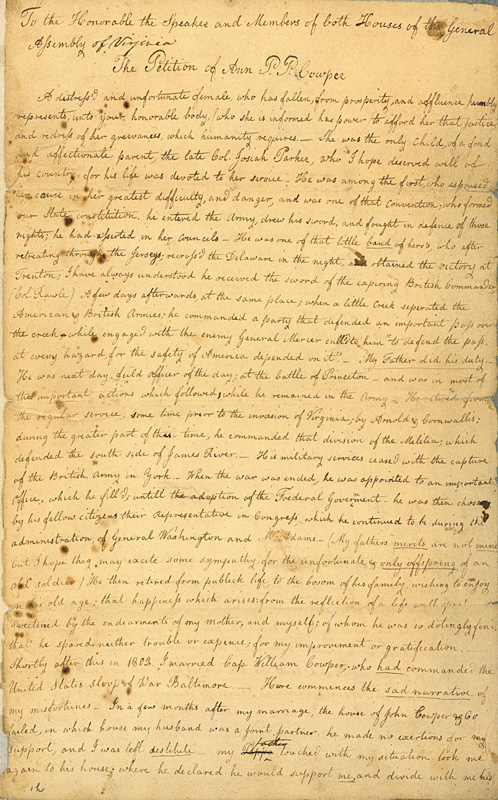 To the Honorable the Speaker and Members of both Houses of the General
Assembly of Virginia
The Petition of Ann P. P. Cowper
A distress'd and unfortunate female, who has fallen, from prosperity, and affluence, humbly
represents, unto your honorable body, (who she is informed has power to afford her that justice,
and redress of her grievances, which humanity requires — She was the only child, of a fond
and affectionate parent, the late Col. Josiah Parker, who I hope deserved well of
his country, for his life was devoted to her service — He was among the first, who espoused
her cause in her greatest difficulty, and danger, and was one of that Convention, who formed
our State constitution, he entered the Army, drew his sword, and fought in defence of those
rights, he had asserted in her councils — He was one of that little band of hero's, who after
retreating through the Jerseys, recross'd the Delaware in the night, and obtained the victory at
Trenton; I have always understood he received the sword of the expiring British Commander
(Col. Rawle.) A few days afterwards, at the same place; when a little Creek seperated the
American & British Armies; he commanded a party that defended an important pass over
the creek — while engaged with the enemy General Mercer call'd to him "to defend the pass
at every hazard, for the safety of America depended on it" — My Father did his duty —
He was next day, field officer of the day; at the battle of Princeton — and was in most of
the important actions which followed, while he remained in the Army — He retired from
the regular service, some time prior to the invasion of Virginia, by Arnold & Cornwallis;
during the greater part of this time, he commanded that division of the Militia; which
defended the south side of James River — His military services ceased with the capture
of the British Army in York — When the war was ended, he was appointed to an important
Office, which he fill'd, untill the adoption of the Foederal Goverment — he was then chosen
by his fellow citizens their Representative in Congress, which he continued to be during the
administration, of General Washington and Mr. Adams — (My fathers merits are not mine
but I hope they may excite some sympathy, for the unfortunate, & only offspring of an
old soldier) He then retired from publick life to the bosom of his family, wishing to enjoy
in his old age; that happiness which arises, from the reflection of a life well
sweetened by the endearments of my mother, and myself; of whom he was so dotingly fond,
that he spared neither trouble or expence; for my improvement or gratification.
Shortly after this in 1802. I married Cap. William Cowper; who had commanded the
United States sloop of War Baltimore — Here commences the sad narrative of
my misfortunes — In a few months after my marriage, the house of John Cowper & Co
failed, in which house my husband was a joint partner, he made no exertions for my
support, and I was left destitute my father touched with my situation took me
again to his house; where he declared he would support me, and divide with me his